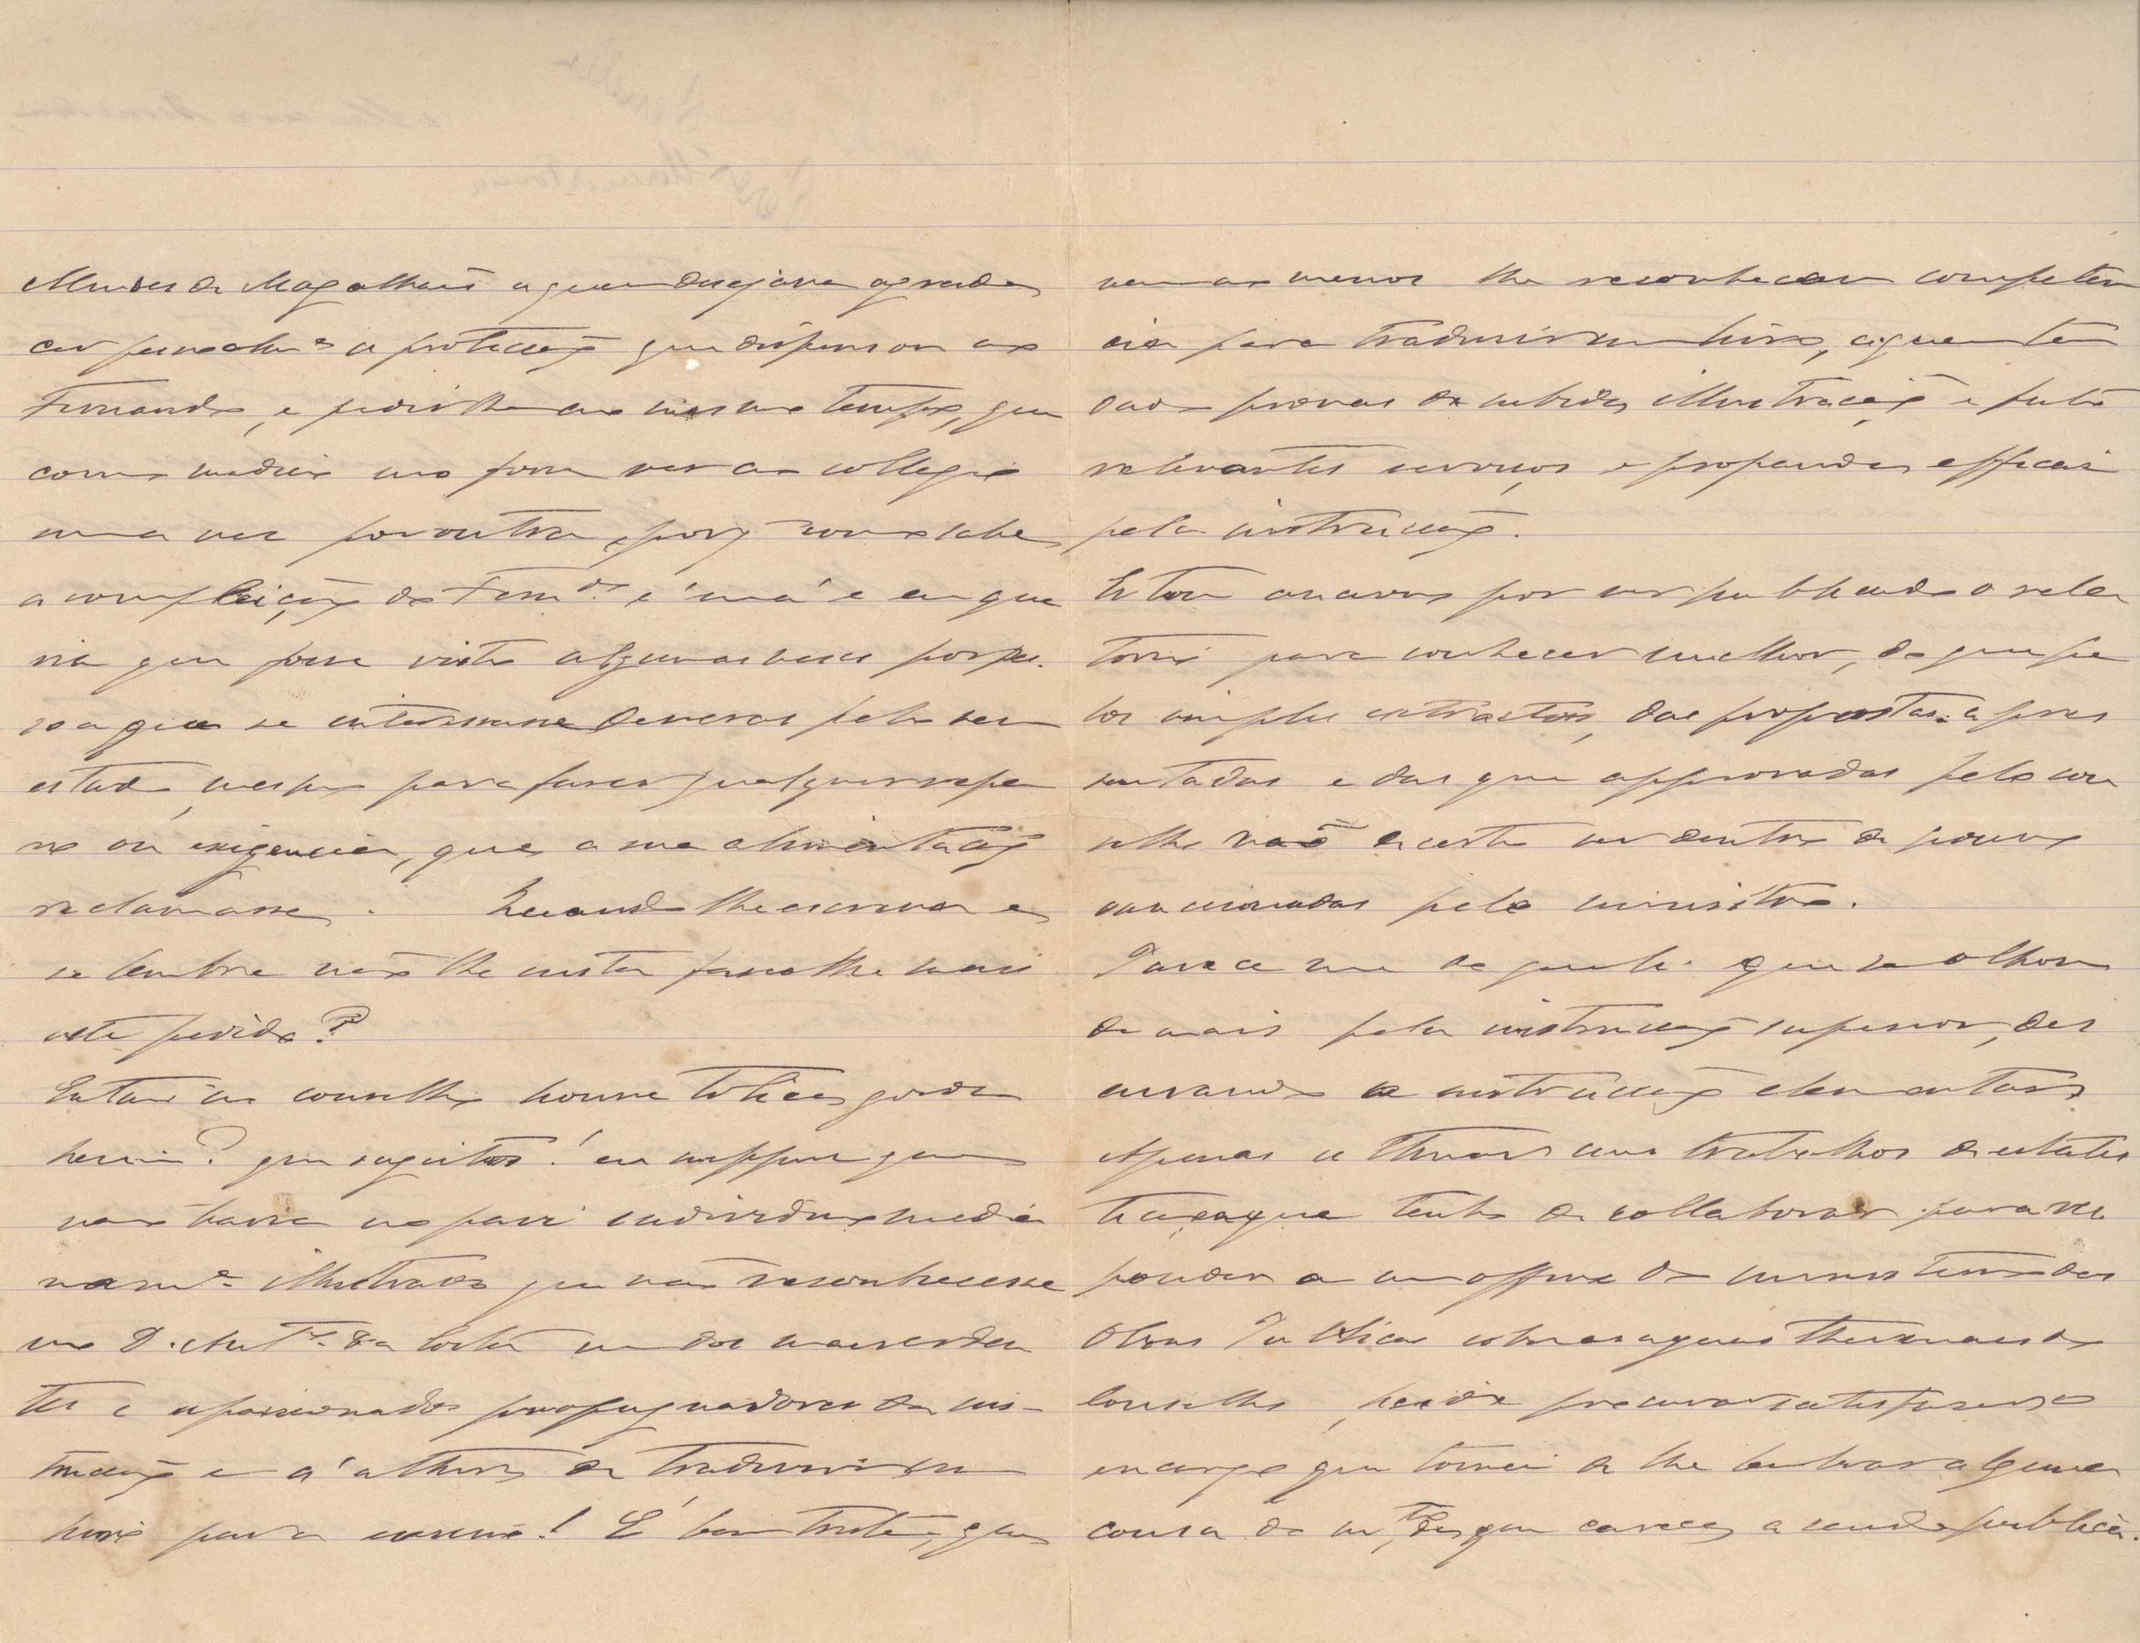 Mendes de Magalhães a quem desejava agrade
cer pessoalm.e a protecção que dispensou ao
Fernando, e pedir lhe ao mesmo tempo, que
como medico no fosse ver ao collegio
uma vez por outra, porq como sabe
a compleição do Fern.do é má e eu que
ria que fosse visto algumas vezes por pes
soa que se interessasse deveras pelo seu
estado, mesmo para fazer qualquer repa
ro ou exigencia, que a sua alimentação
reclamasse. Quando lhe escrever e
se lembre não lhe custa fazer lhe mais
este pedido?
Então no conselho houve tolices gordas
hein? que sugeitos! eu suppuz que
não havia no paiz individuo media
nam.e illustrado que não reconhecesse
no D. Ant.o da Costa um dos mais arden
tes e apaixonados propugnadores da ins-
trucção e a'
livro para ! É bem triste, que
nem ao menos lhe reconheceram competen
cia para traduzir um livro, a quem tem
dado provas de subida illustração e feito
relevantes serviços e propaganda efficaz
pela instrucção.
Estou ancioso por ver publicado o rela
torio para conhecer melhor, do que pe
los simples extractos, das propostas apre
sentadas e das que approvadas pelo con
selho não de certo ser dentro de pouco
sanccionadas pelo ministro.
Parece me que se olhou
de mais pela instrucção superior, des
curando a instrucção elementar
Apenas uns trabalhos de estatis
tica que tenho de collaborar para res
ponder a um officio do ministerio das
Obras Publicas sobre as aguas thermaes do
Concelho, heide procurar satisfazer o
encargo que tomei de lhe lembrar alguma
cousa do m.to de que carece a saude publica.